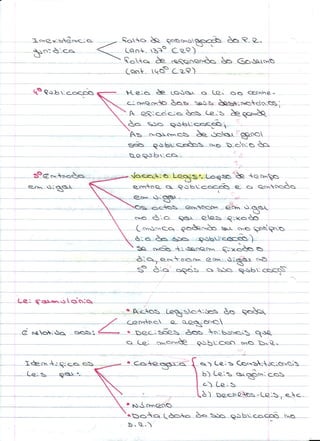 Inexistência
jurídica
Falta de promulgação do P.R.
(art. 137º CRP)
Falta de referenda do Governo
(art. 140º CRP)
4º Publicação
Meio de levar a Lei ao conhe-
cimento dos seus destinatários;
A eficácia das Leis depende
da sua publicação;
As normas de valor geral
são publicadas no Diário da
República.
5º Entrada
em vigor
Vacatio Legis: Lapso de tempo
entre a publicação e a entrada
em vigor
Os actos entram em vigor
no dia por eles fixado
(nunca podendo ser no próprio
dia da sua publicação)
Se não tiverem fixado o
dia, entram em vigor no
5º dia após a sua publicação
Lei formulária
É relativa aos:
• Actos legislativos do poder
central e regional
• Decisões dos tribunais que
a Lei mande publicar no D.R.
Identifica as
Leis por:
• Categoria
a) Leis Constitucionais
b) Leis orgânicas
c) Leis
d) Decretos-Leis, etc.
• Número
• Data (data da sua publicação no
D.R.)